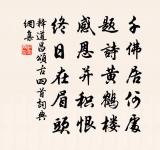 千佛居何處
題詩黃鶴樓
感恩并積恨
終日在眉頭
釋道昌頌古四首詞典
網集